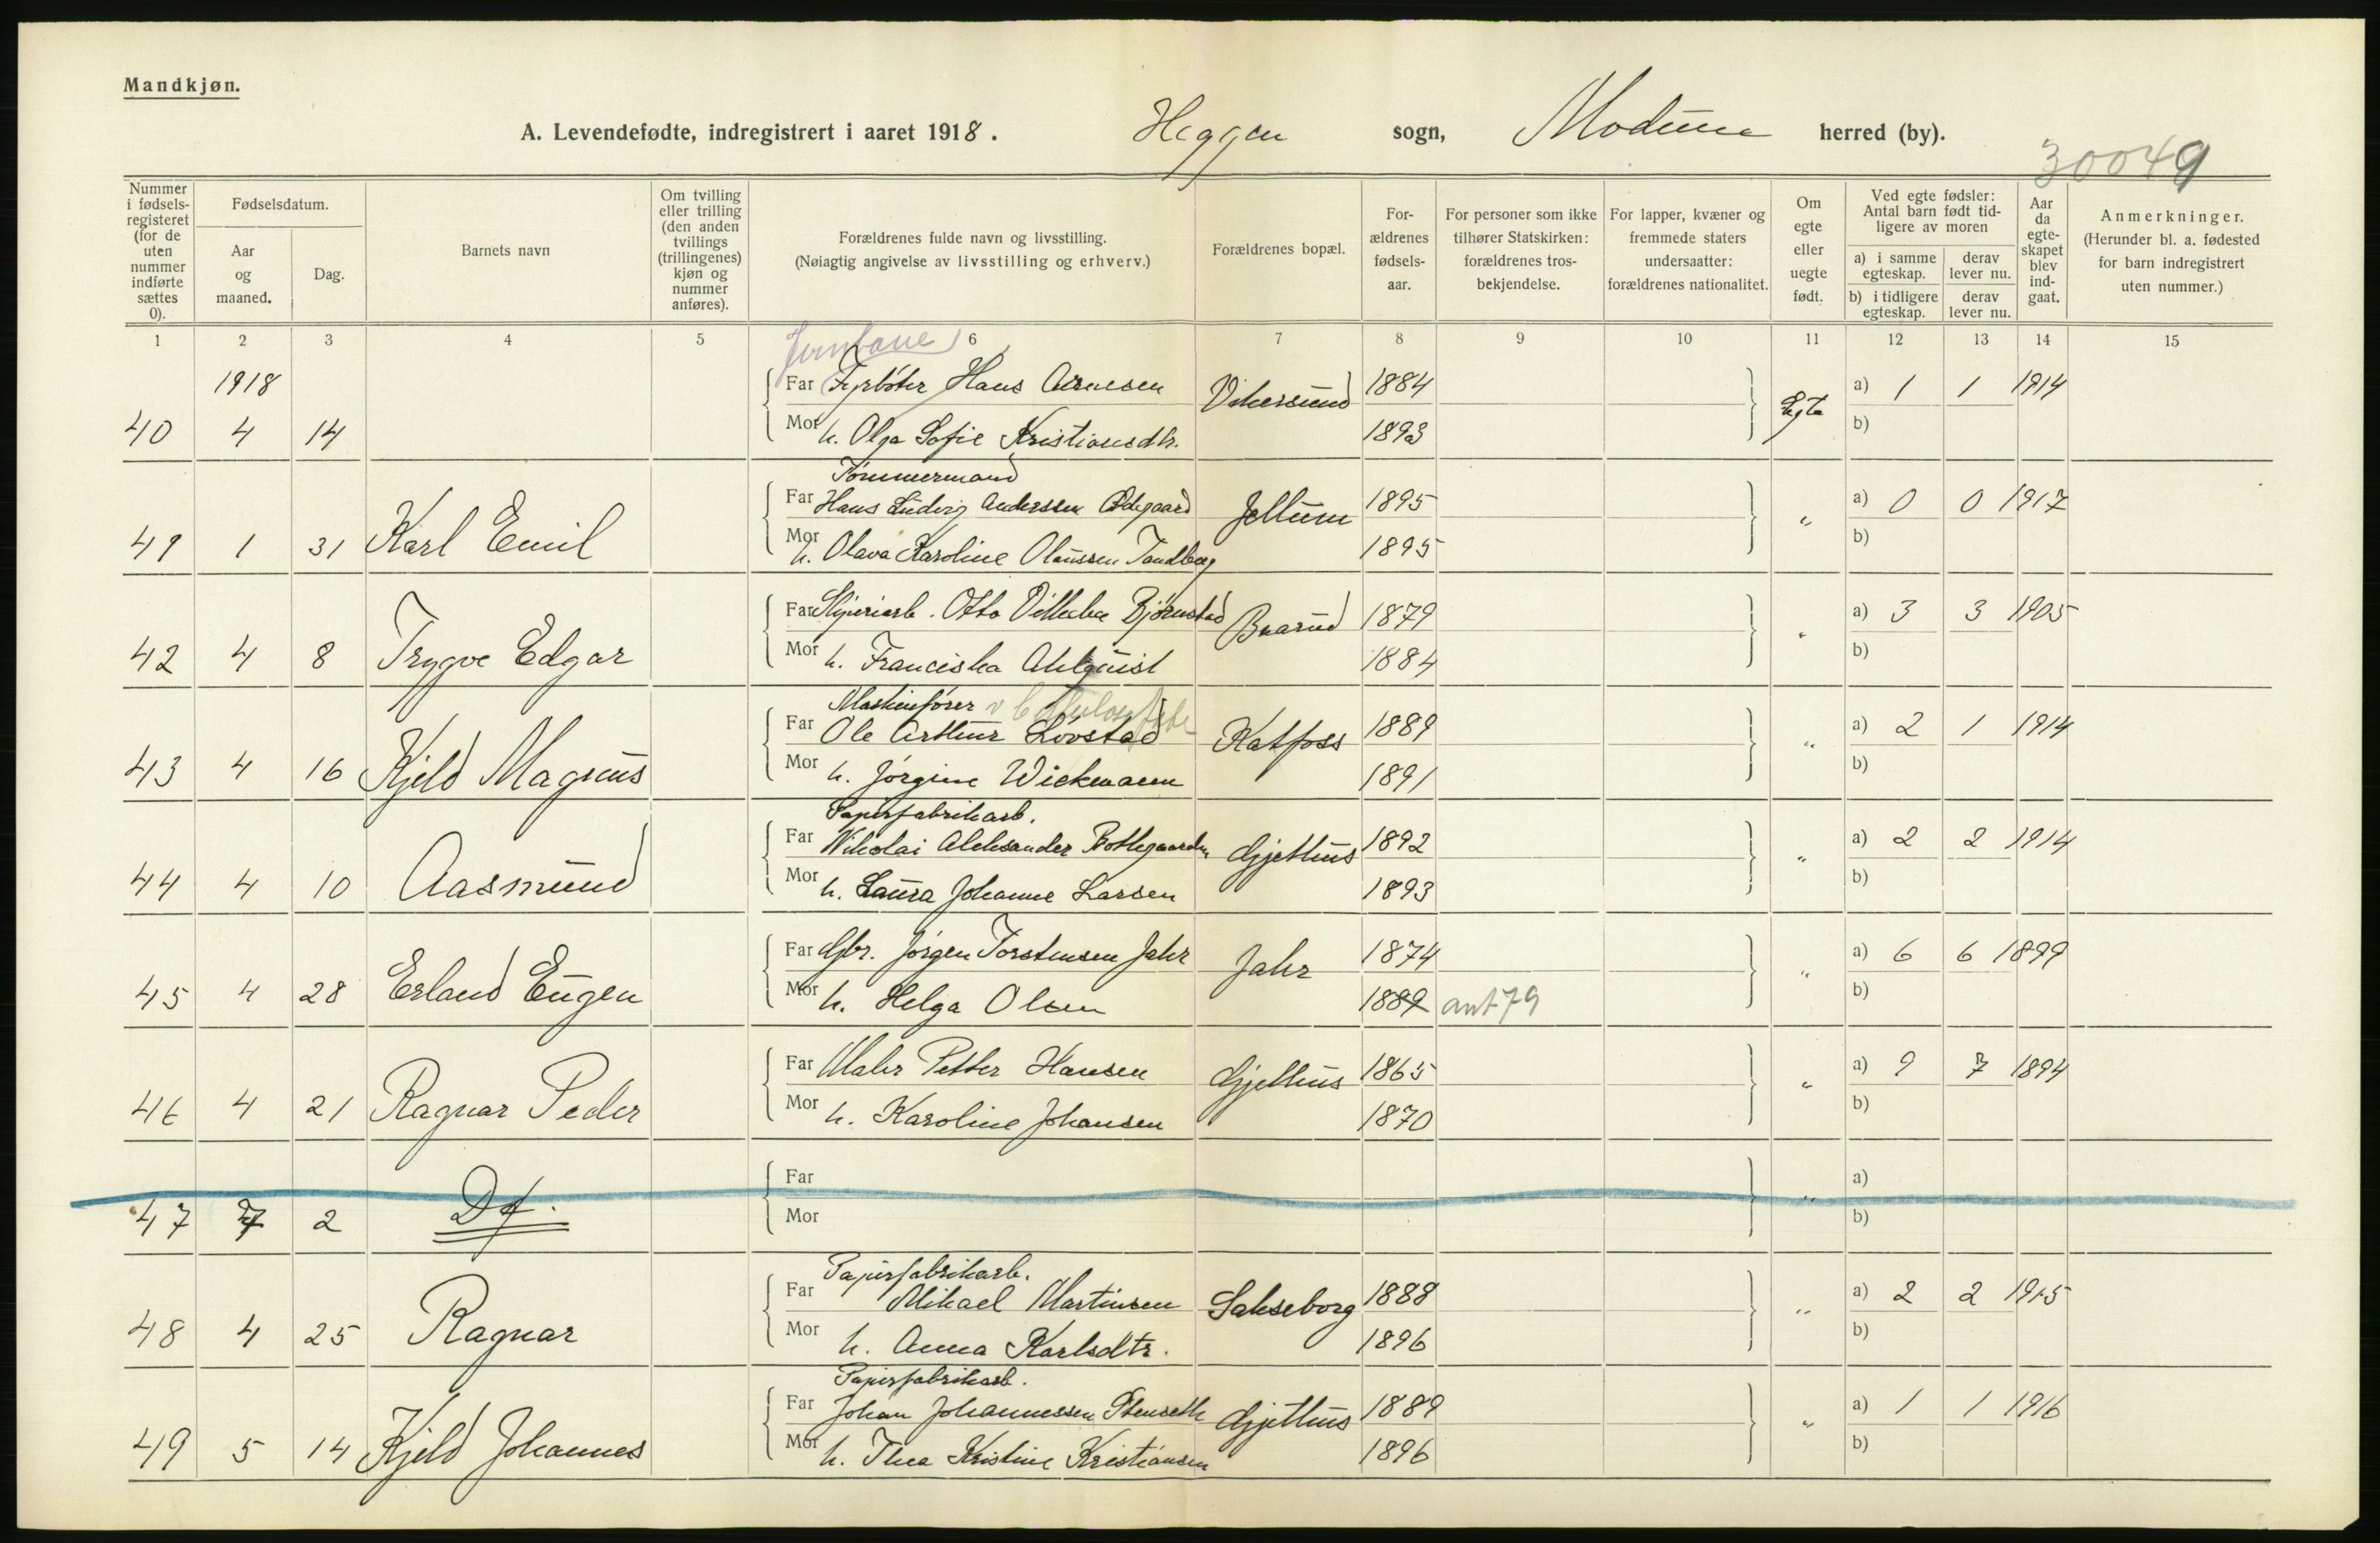 Mandkjøn.
A. Levendefødte, indregistrert i aaret 1918. Heggen sogn, Modum herred (by).
30049
Nummer i fødsels-registeret (for de uten nummer indførte sættes 0).
Fødselsdatum.
Aar og maaned.
Dag.
Barnets navn
Om tvilling eller trilling (den anden tvillings (trillingenes) kjøn og nummer anføres).
Forældrenes fulde navn og livsstilling.
(Nøiagtig angivelse av livsstilling og erhverv.)
Forældrenes bopæl.
For-ældrenes fødsels-aar.
For personer som ikke tilhører Statskirken: forældrenes tros-bekjendelse.
For lapper, kvæner og fremmede staters undersaatter: forældrenes nationalitet.
Om egte eller uegte født.
Ved egte fødsler: Antal barn født tid-ligere av moren
a) i samme egteskap.
derav lever nu.
b) i tidligere egteskap.
derav lever nu.
Aar da egte-skapet blev ind-gaat.
Anmerkninger.
(Herunder bl. a. fødested for barn indregistrert uten nummer.)
1 2 3 4 5 6 7 8 9 10 11 12 13 14 15
Jernbane
1918
Far Fyrbøter Hans Arnesen Vikersund 1884 Egte a) 1 1 1914
40 4 14 Mor h. Olga Sofie Kristiansdtr. 1893 b)
Tømmermand
Far Hans Ludvig Anderssen Ødegaard Jellum 1895 " a) 0 0 1917
41 1 31 Karl Emil Mor h. Olava Karoline Olaussen Tandberg 1895 b)
Far Sliperiarb. Otto Vilhelm Bjørnstad Buarud 1879 " a) 3 3 1905
42 4 8 Trygve Edgar Mor h. Franciska Ahlquist 1884 b)
Maskinfører v Cellulosefabr
Far Ole Arthur Løvstad Katfoss 1889 " a) 2 1 1914
43 4 16 Kjeld Magnus Mor h. Jørgine Wickmann 1891 b)
Papirfabrikarb.
Far Nikolai Aleksander Bottegaarden Gjethus 1892 " a) 2 2 1914
44 4 10 Aasmund Mor h. Laura Johanne Larsen 1893 b)
Far Gbr. Jørgen Torstensen Jahr Jahr 1874 " a) 6 6 1899
45 4 28 Erland Eugen Mor h. Helga Olsen 1889 ant 79 b)
Far Maler Petter Hansen Gjethus 1865 " a) 9 7 1894
46 4 21 Ragnar Peder Mor h. Karoline Johansen 1870 b)
Far " a)
47 4 2 Df. Mor b)
Papirfabrikarb.
Far Mikael Martinsen Sakseborg 1888 " a) 2 2 1915
48 4 25 Ragnar Mor h. Anna Karlsdtr. 1896 b)
Papirfabrikarb.
Far Johan Johannessen Stenseth Gjethus 1889 " a) 1 1 1916
49 5 14 Kjeld Johannes Mor h. Thea Kristine Kristiansen 1896 b)